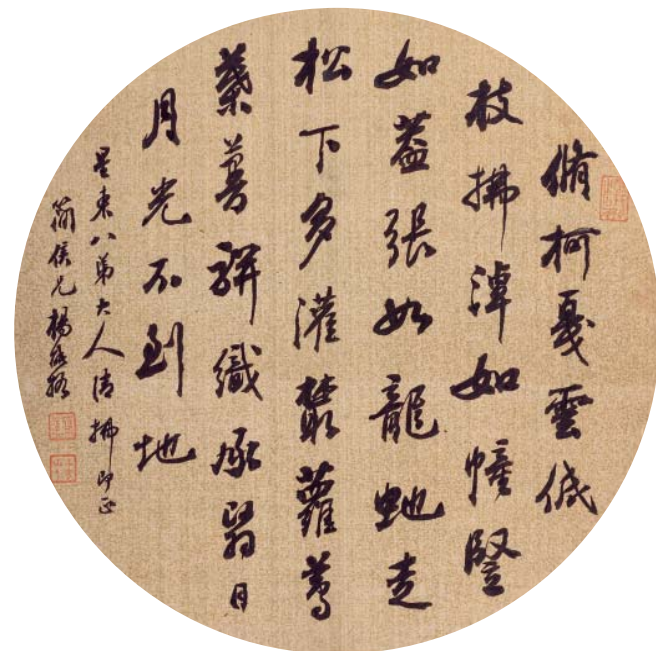 脩柯戛雲低
枝拂潭如幢竪
如葢張如龍虵走
松下多灌藂蘿蔦
葉蔓駢織承翳日
月光不到地
星東八弟大人清拂即正
簡侯兄楊能格